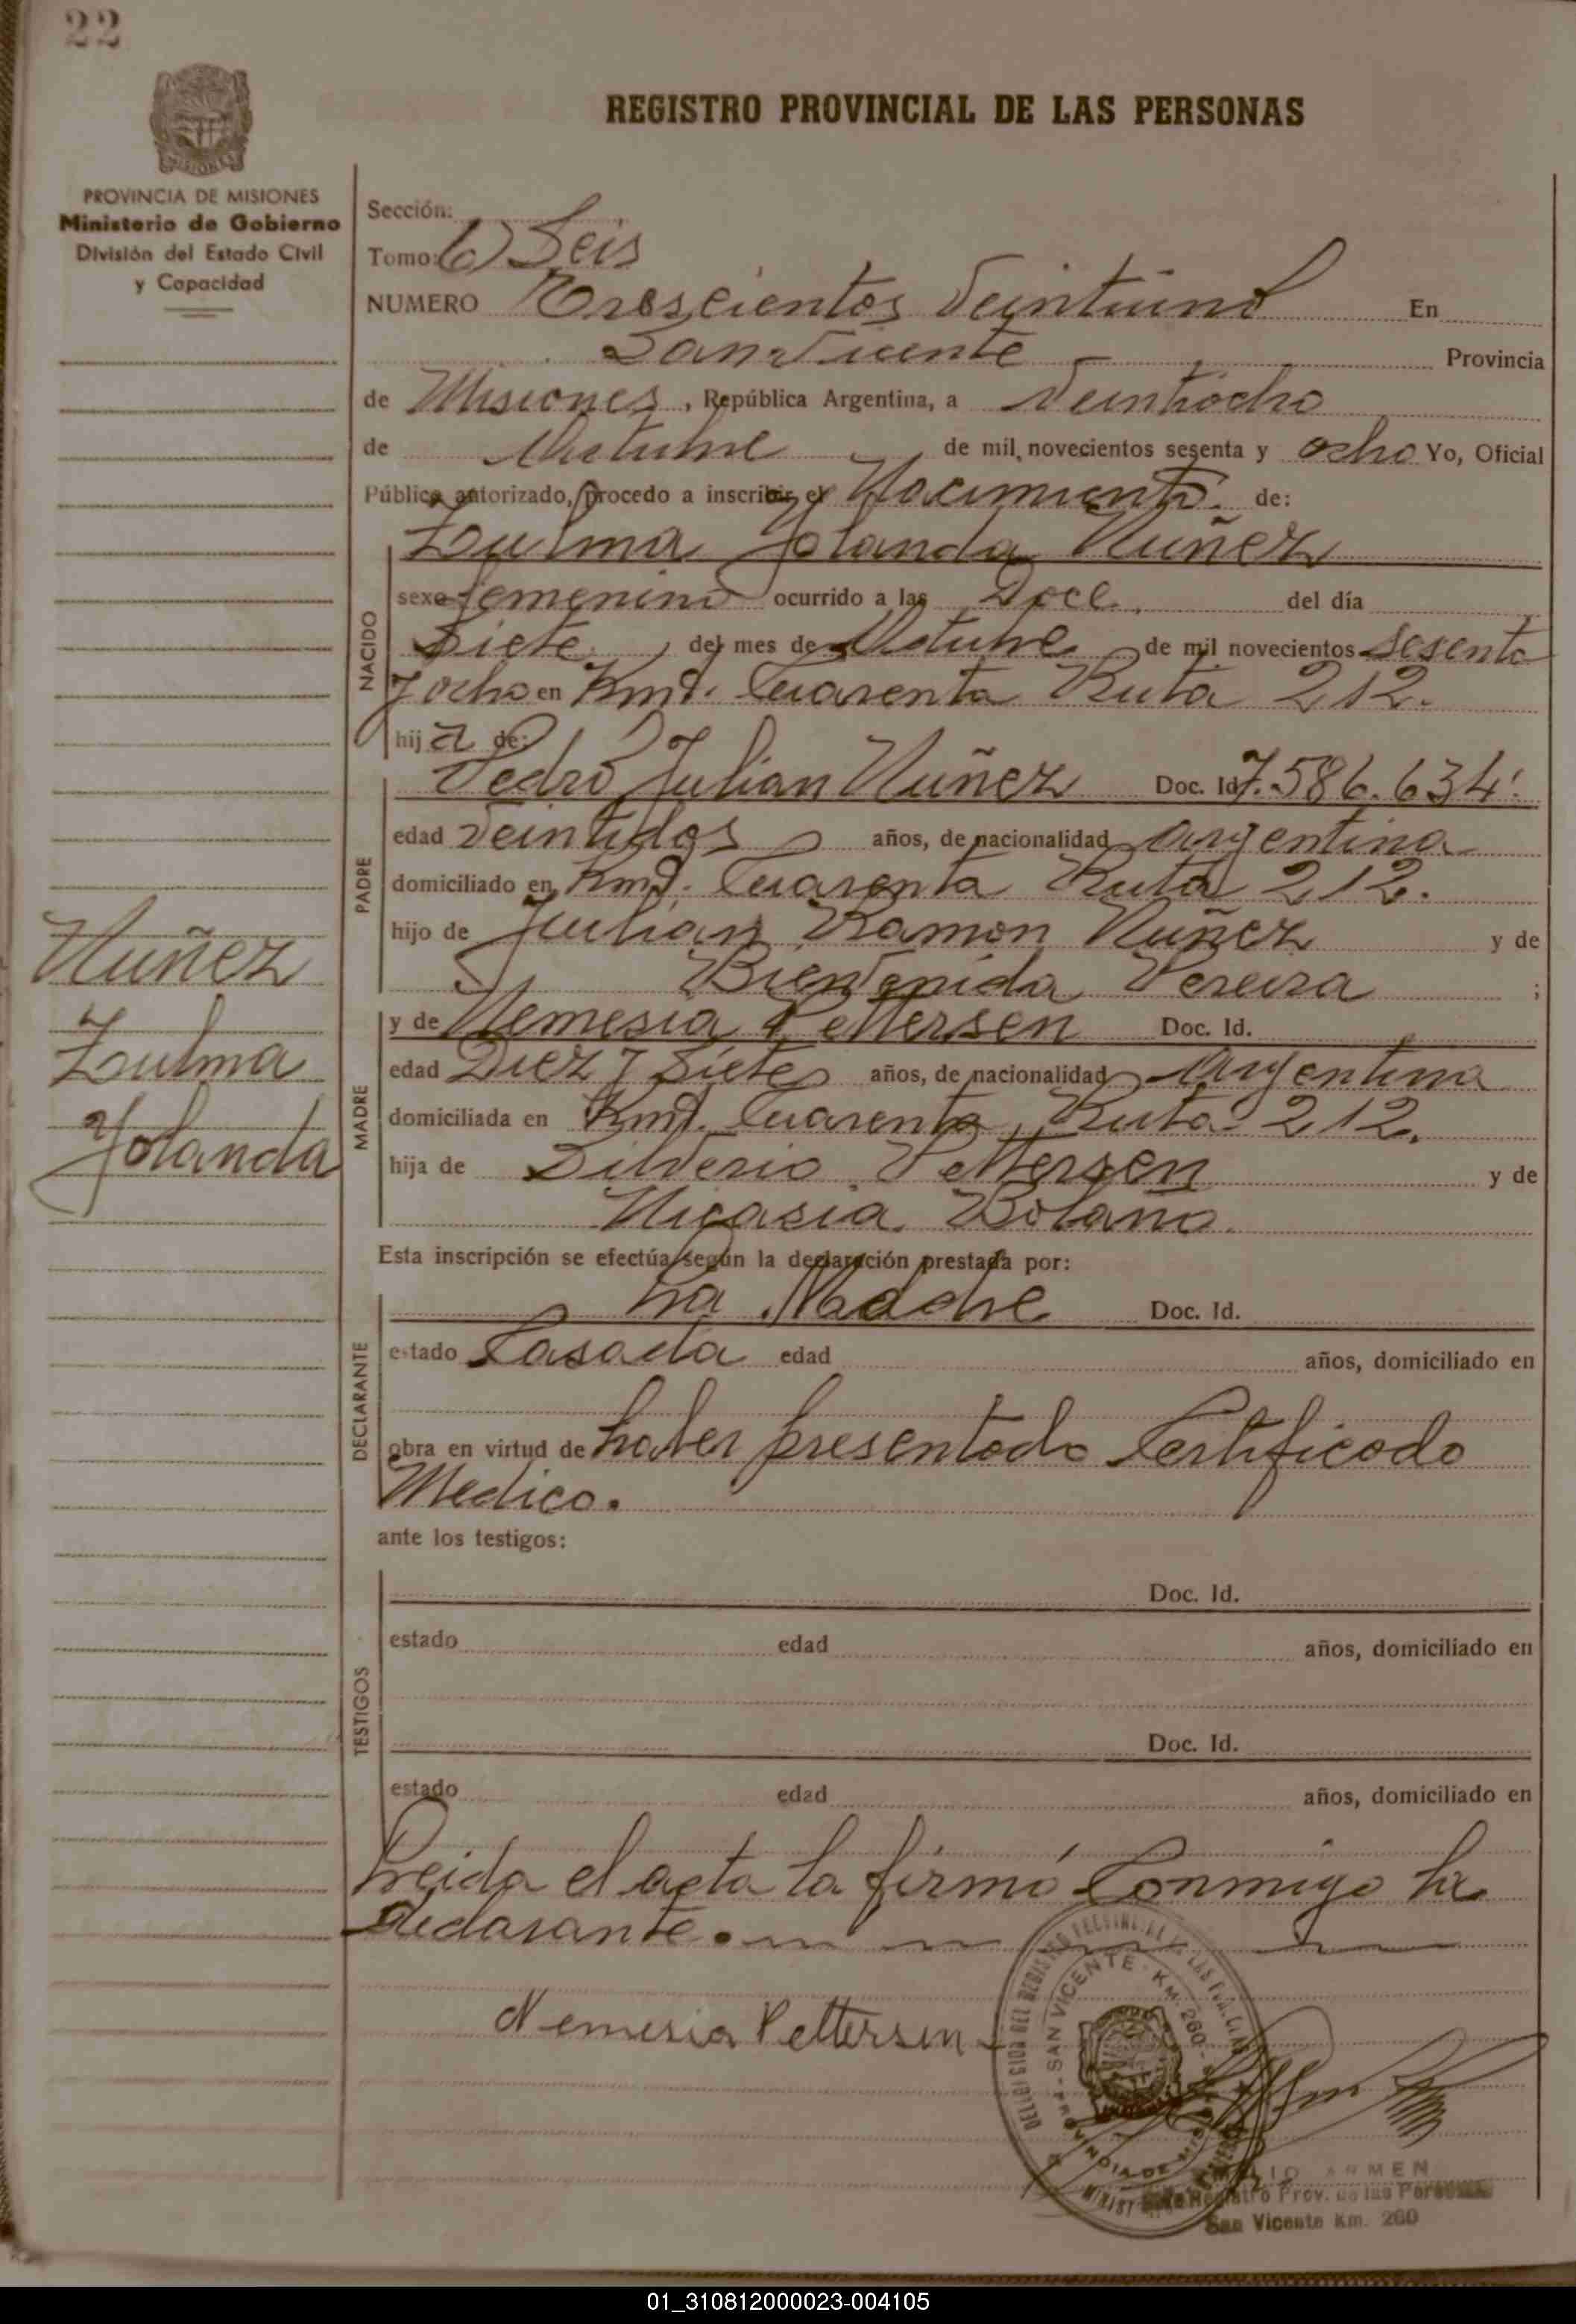 22
REGISTRO PROVINCIAL DE LAS PERSONAS
MISIONES
PROVINCIA DE MISIONES
Ministerio de Gobierno
División del Estado Civil
y Capacidad
Sección:
Tomo: 6) Seis
NUMERO Trescientos Veintiuno En
San Vicente Provincia
de Misiones, República Argentina, a Veintiocho
de Octubre de mil novecientos sesenta y ocho Yo, Oficial
Público autorizado, procedo a inscribir el Nacimiento. de:
Zulma Yolanda Nuñez
NACIDO
sexo femenino ocurrido a las Doce, del día
Siete del mes de Octubre de mil novecientos Sesenta
y ocho en Kmt. Cuarenta Ruta 212.
hija de:
Pedro Julian Nuñez Doc. Id 7.586.634.
PADRE
edad Veintidos años, de nacionalidad argentina
domiciliado en Kmt. Cuarenta Ruta 212.
hijo de Julian Ramon Nuñez y de
Bienvenida Pereira ;
y de Nemesia Pettersen Doc. Id.
MADRE
edad Diez y Siete años, de nacionalidad Argentina
domiciliada en Kmt. Cuarenta Ruta 212.
hija de Silverio Pettersen y de
Nicasia Bolaño.
Nuñez
Zulma
Yolanda
Esta inscripción se efectúa según la declaración prestada por:
La Madre Doc. Id.
DECLARANTE
estado Casada edad años, domiciliado en
obra en virtud de haber presentado Certificado
Medico.
ante los testigos:
TESTIGOS
Doc. Id.
estado edad años, domiciliado en
Doc. Id.
estado edad años, domiciliado en
Leida el acta la firmó Conmigo la
declarante.
Nemesia Pettersen
SAN VICENTE - KM. 260 - PROVINCIA DE
ARMEN
Registro Prov. de las Personas
San Vicente Km. 260
01_310812000023-004105